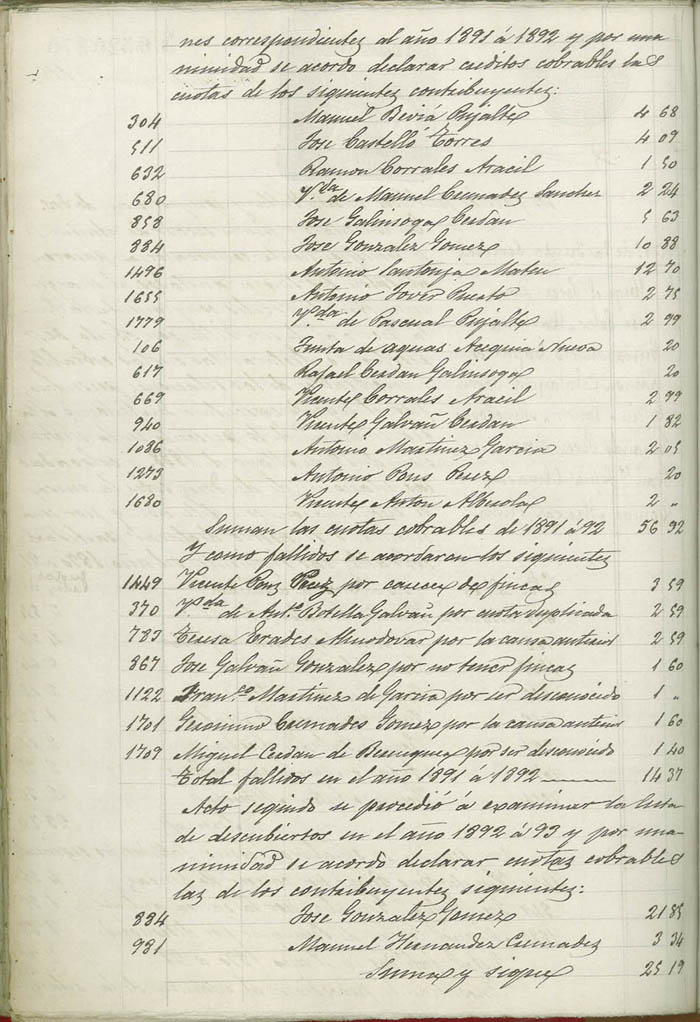 nes correspondientes al año 1891 á 1892 y por una
nimidad se acordo declarar creditos cobrables las
cuotas de los siguientes contribuyentes:
304 Manuel Beviá Pujalte 4 68
511 Jose Castelló Torres 4 09
632 Ramon Corrales Aracil 1 50
680 V.da de Manuel Cremades Sanchez 2 24
858 Jose Galinsoga Cerdan 5 63
884 Jose Gonzalez Gomez 10 88
1496 Antonio Santonja Mateu 12 70
1655 Antonio Jover Puerto 2 75
1779 V.da de Pascual Pujalte 2 99
106 Junta de aguas Acequia Nueva 20
617 Rafael Cerdan Galinsoga 20
669 Vicente Corrales Aracil 2 99
940 Vicente Galvañ Cerdan 1 82
1086 Antonio Martinez Garcia 2 05
1273 Antonio Pons Perez 20
1680 Vicente Anton Alberola 2 "
Suman las cuotas cobrables de 1891 á 92 56 92
Y como fallidos se acordaron los siguientes
1449 Vicente Pons Perez por carecer de fincas 3 59
370 V.da de Ant.º Botella Galvañ por cuota duplicada 2 59
783 Teresa Erades Almodovar por la causa anterior 2 59
867 Jose Galvañ Gonzalez por no tener fincas 1 60
1122 Fran.co Martinez de Garcia por ser desconocido 1 "
1701 Geronimo Cremades Gomez por la causa anterior 1 60
1709 Miguel Cerdan de Berenguer por ser desconocido 1 40
Total fallidos en el año 1891 a 1892 14 37
Acto seguido se procedió á examinar la lista
de descubiertos en el año 1892 á 93 y por una
nimidad se acordo declarar cuotas cobrables
las de los contribuyentes siguientes:
884 Jose Gonzalez Gomez 21 85
981 Manuel Hernandez Cremades 3 34
Suma y sigue 25 19